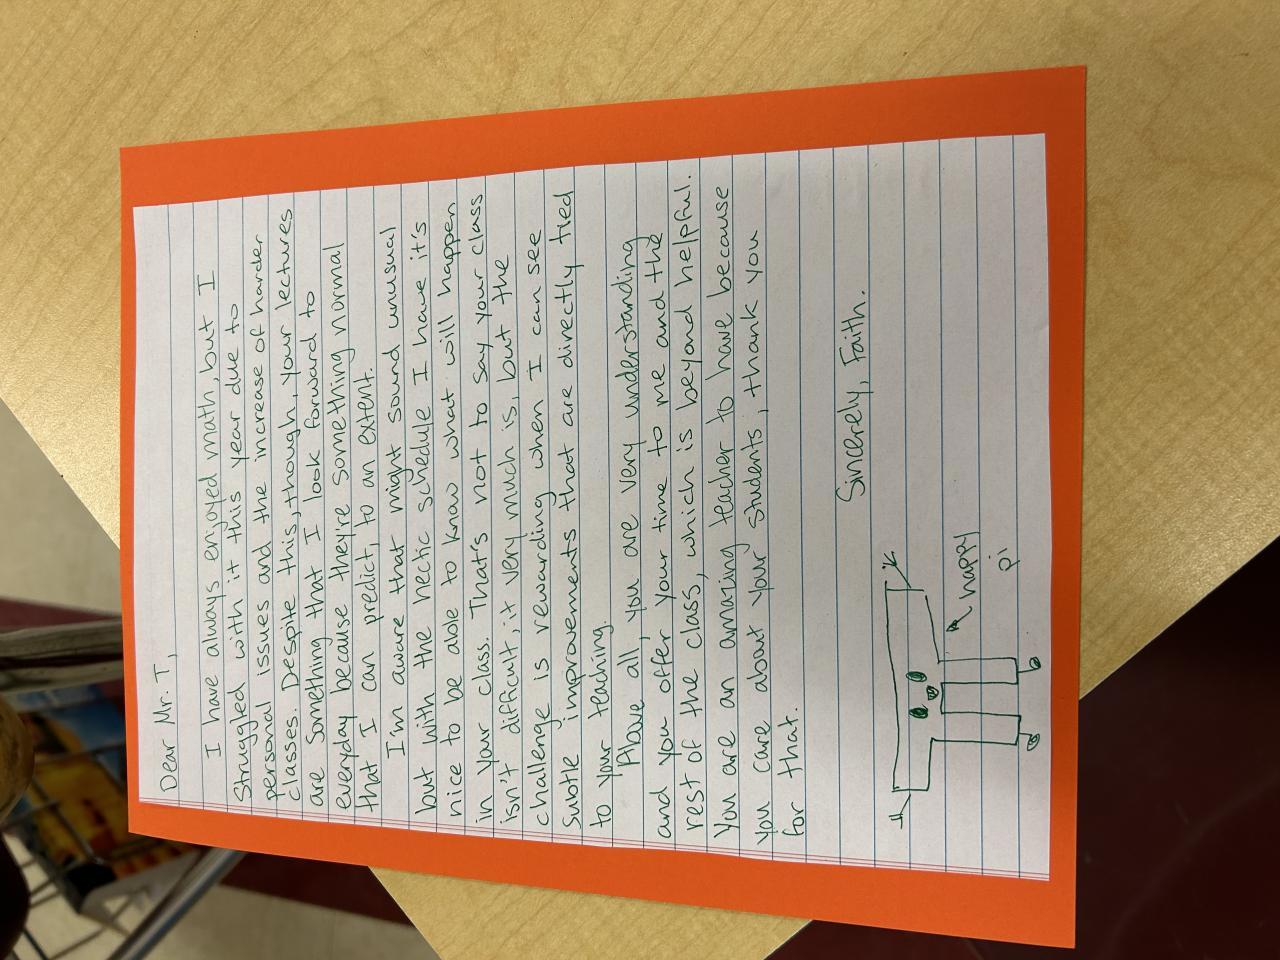 Dear Mr. T,
I have always enjoyed math, but I
struggled with it this year due to
personal issues and the increase of harder
classes. Despite this, though, your lectures
are something that I look forward to
everyday because they're something normal
that I can predict, to an extent.
I'm aware that might sound unusual
but with the hectic schedule I have it's
nice to be able to know what will happen
in your class. That's not to say your class
isn't difficult, it very much is, but the
challenge is rewarding when I can see
subtle improvements that are directly tied
to your teaching.
Above all, you are very understanding
and you offer your time to me and the
rest of the class, which is beyond helpful.
You are an amazing teacher to have because
you care about your students, thank you
for that.
Sincerely, Faith.
happy
pi